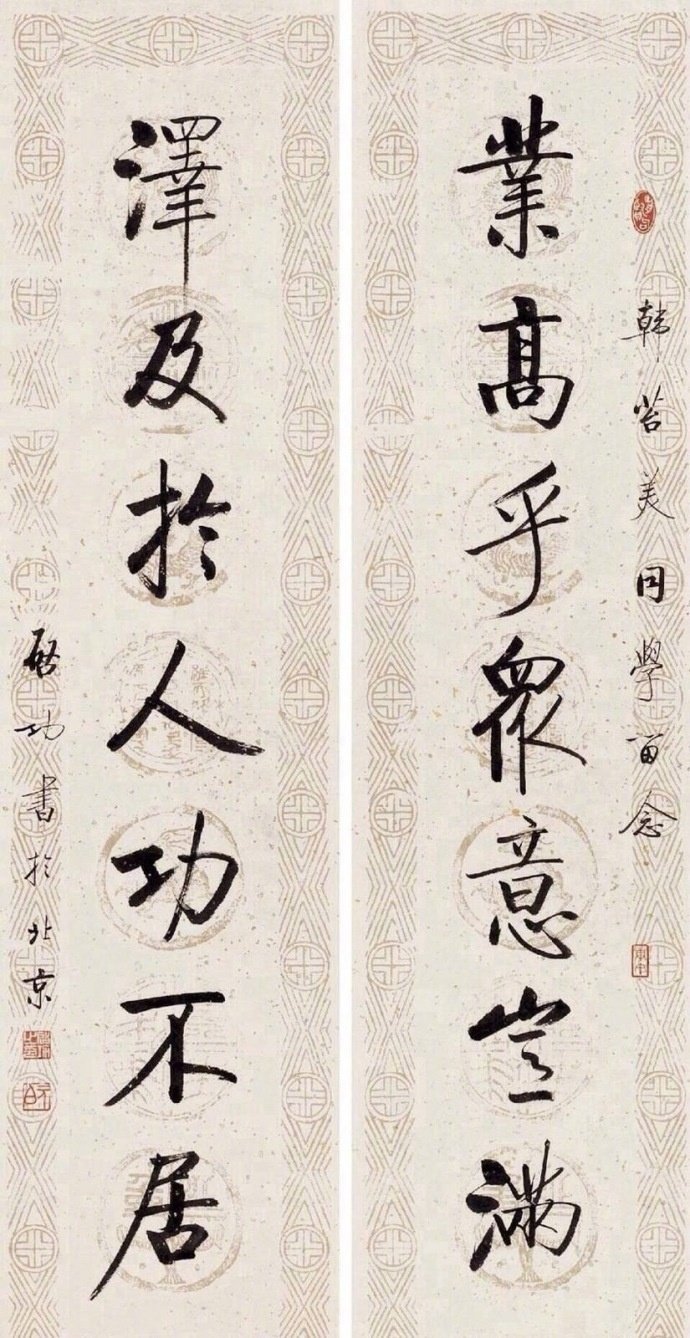 韓苔美同學留念
業高乎眾意豈滿
澤及於人功不居
啟功書於北京